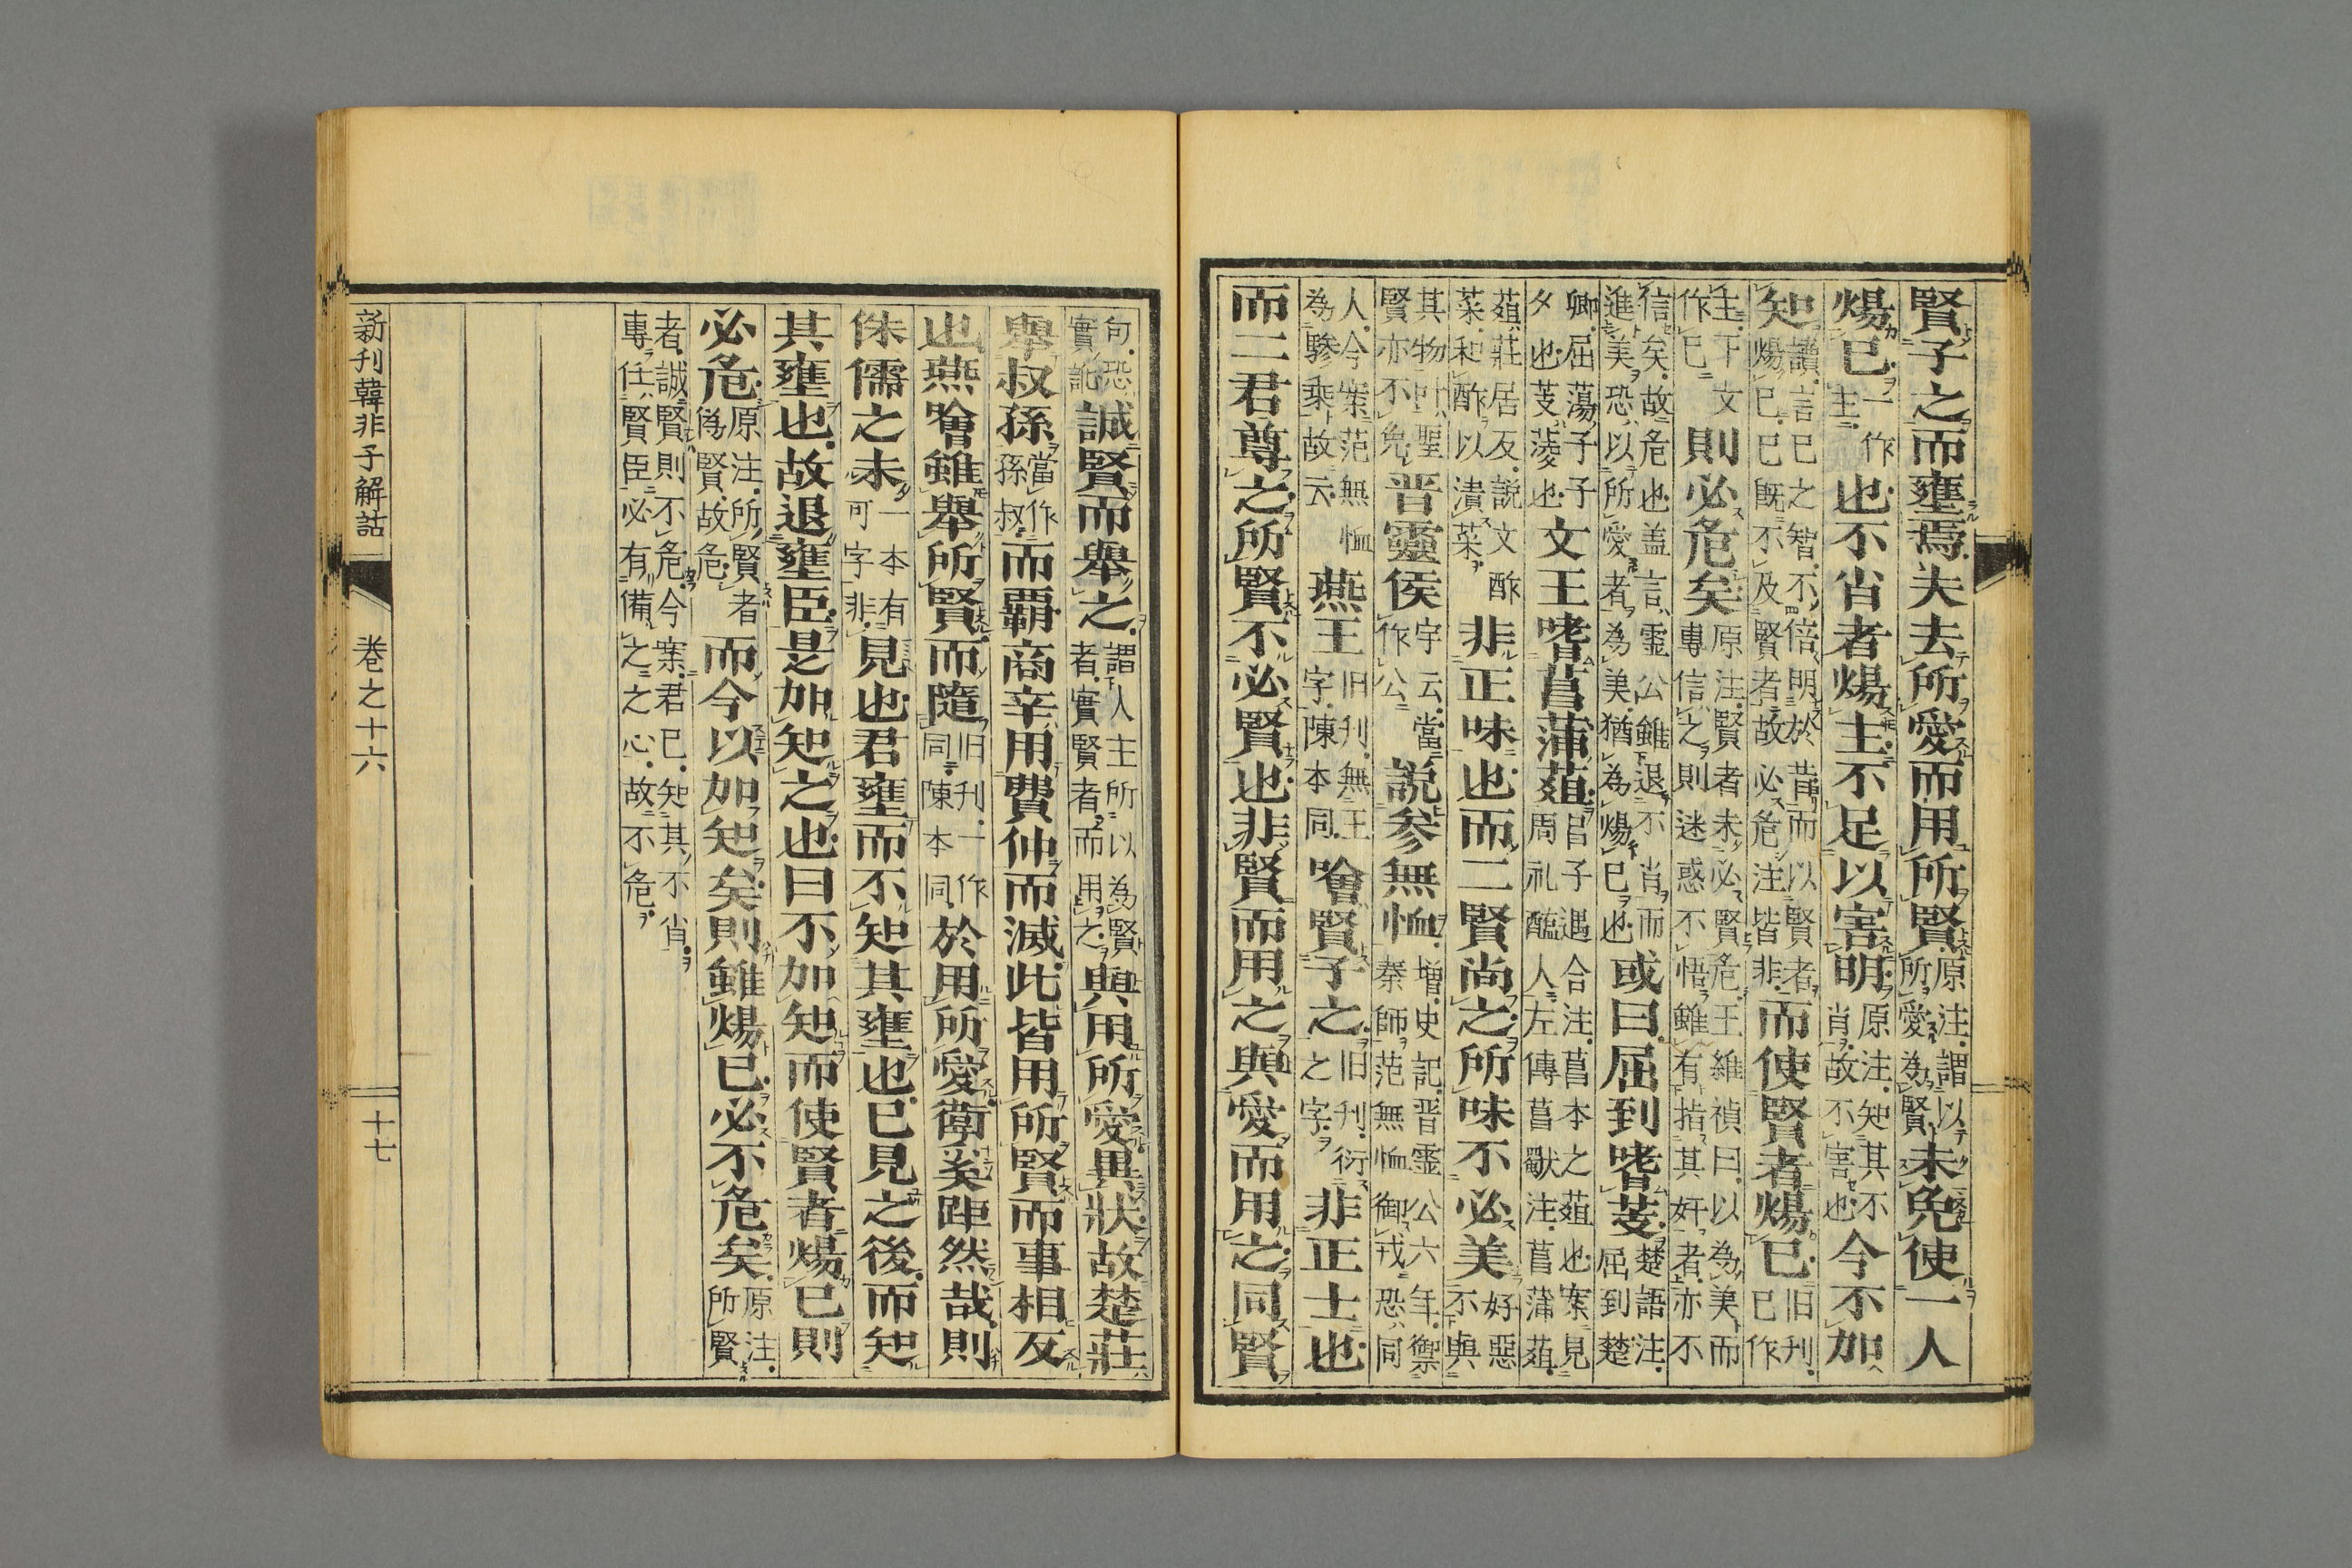 賢子之而壅焉夫去所愛而用所賢原注謂以所愛為賢未免使一人
煬已一作主也不肖者煬主不足以害明原注知其不肖故不害也今不加
知讀言已之智不倍明於昔而以賢者煬已已既不及賢者故必危注皆非而使賢者煬已旧刊已作
主下文作已則必危矣原注賢者未必賢危王維禎曰以為美而專信之則迷惑不悟雖有指其奸者亦不
信矣故危也盖言霊公雖退不肖而進美恐以所愛者為美猶為煬已也或曰屈到嗜芰楚語注屈到楚
卿屈蕩子子夕也芰蔆也文王嗜菖蒲葅呂子遇合注菖本之葅也案見周礼醢人左傳菖歜注菖蒲葅
葅莊居反説文酢菜和酢以漬菜非正味也而二賢尚之所味不必美好惡不與
其物叶聖賢亦不免晋靈侯字云當作公説参無恤増史記晋霊公六年禦秦師范無恤御戎恐同
人今案范無恤為驂乗故云燕王旧刊無王字陳本同噲賢子之旧刊衍之字非正士也
而二君尊之所賢不必賢也非賢而用之與愛而用之同賢
句恐實訛誠賢而舉之謂人主所以為賢者實賢者而用之與用所愛異狀故楚莊
舉叔孫當作孫叔而覇商辛用費仲而滅此皆用所賢而事相反
也燕噲雖舉所賢而隨旧刊一作同陳本同於用所愛衛奚距然哉則
侏儒之未一本有可字非見也君壅而不知其壅也已見之後而知
其壅也故退壅臣是加知之也曰不加知而使賢者煬已則
必危原注所賢者偽賢故危而今以加知矣則雖煬已必不危矣原注所賢
者誠賢則不危今案君已知其不肖專任賢臣必有備之之心故不危
新刊韓非子解詁
卷之十六
十七